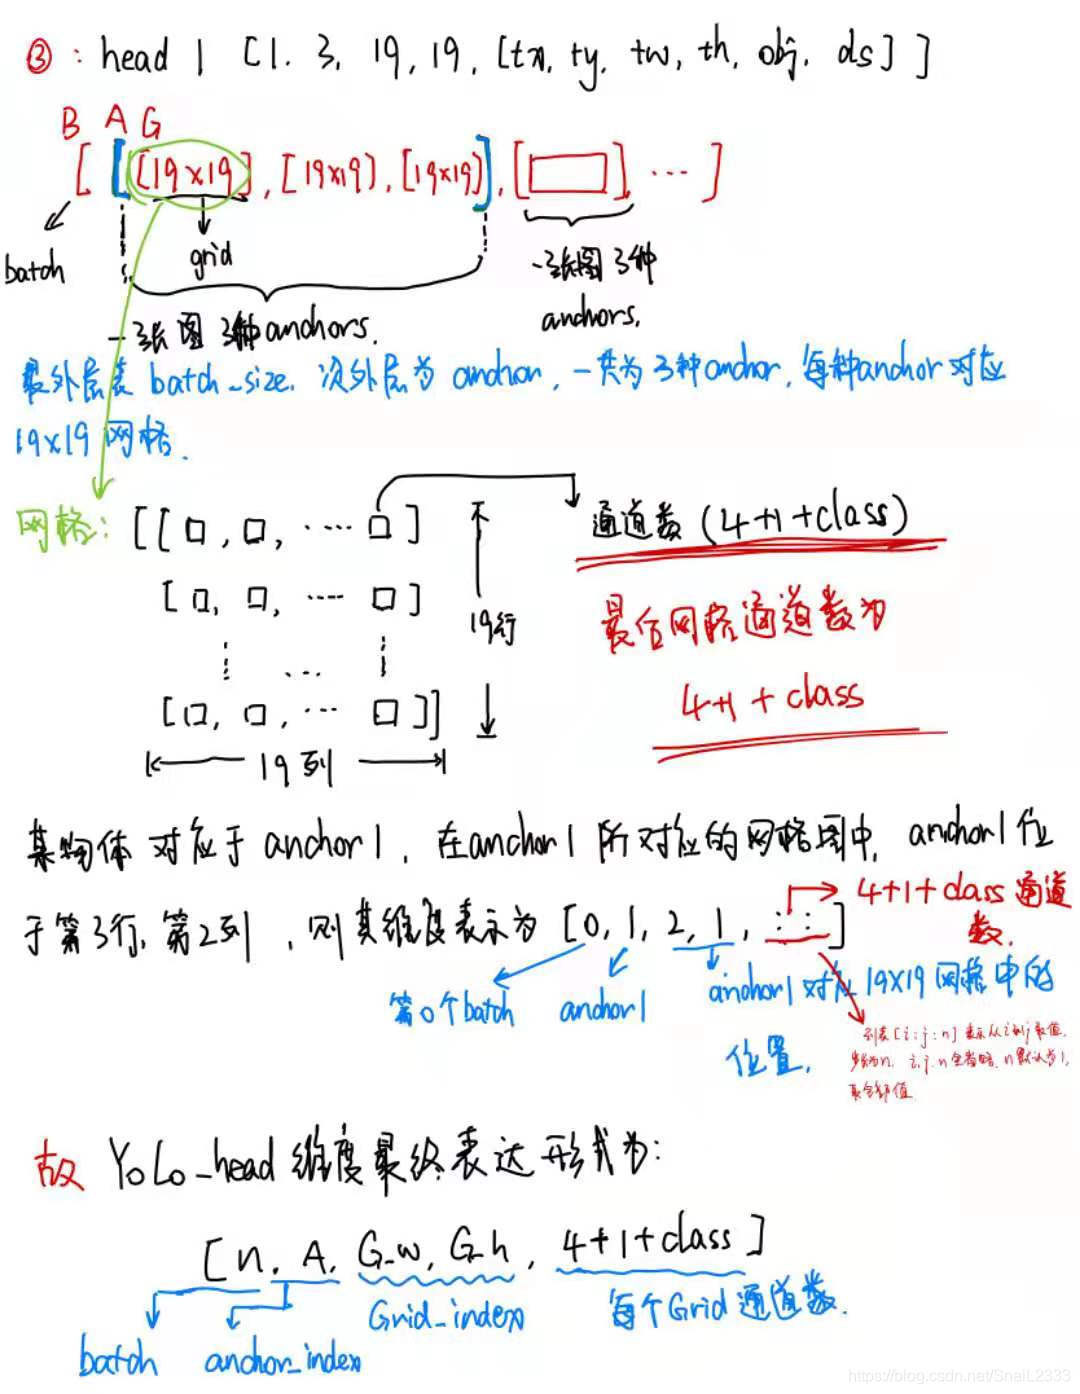 ③: head 1 [1, 3, 19, 19, [tx, ty, tw, th, obj, cls]]
B A G
[ [ [19×19], [19×19], [19×19] ], [ ], ... ]
batch
grid
一张图 3种
anchors.
一张图 3种anchors.
最外层表 batch_size. 次外层为 anchor, 一共为3种anchor, 每种anchor对应
19×19 网格.
网格: [[□, □, ... □]
[□, □, .... □]
...
[□, □, ... □]]
19行
19列
通道数 (4+1+class)
最后网格通道数为
4+1+class
某物体对应于 anchor1, 在anchor1所对应的网格图中, anchor1位
于第3行、第2列, 则其维度表示为 [0, 1, 2, 1, : :]
4+1+class 通道
数.
第0个batch
anchor1
anchor1对应19×19网格中的
位置.
列表[i:j:n]表示从i到j取值,
步长为n, i,j,n全省略, n默认为1,
取全部值
故 YoLo_head 维度最终表达形式为:
[n, A, G_w, G_h, 4+1+class]
Grid_index
每个Grid通道数.
batch
anchor_index
https://blog.csdn.net/SnaiL2333